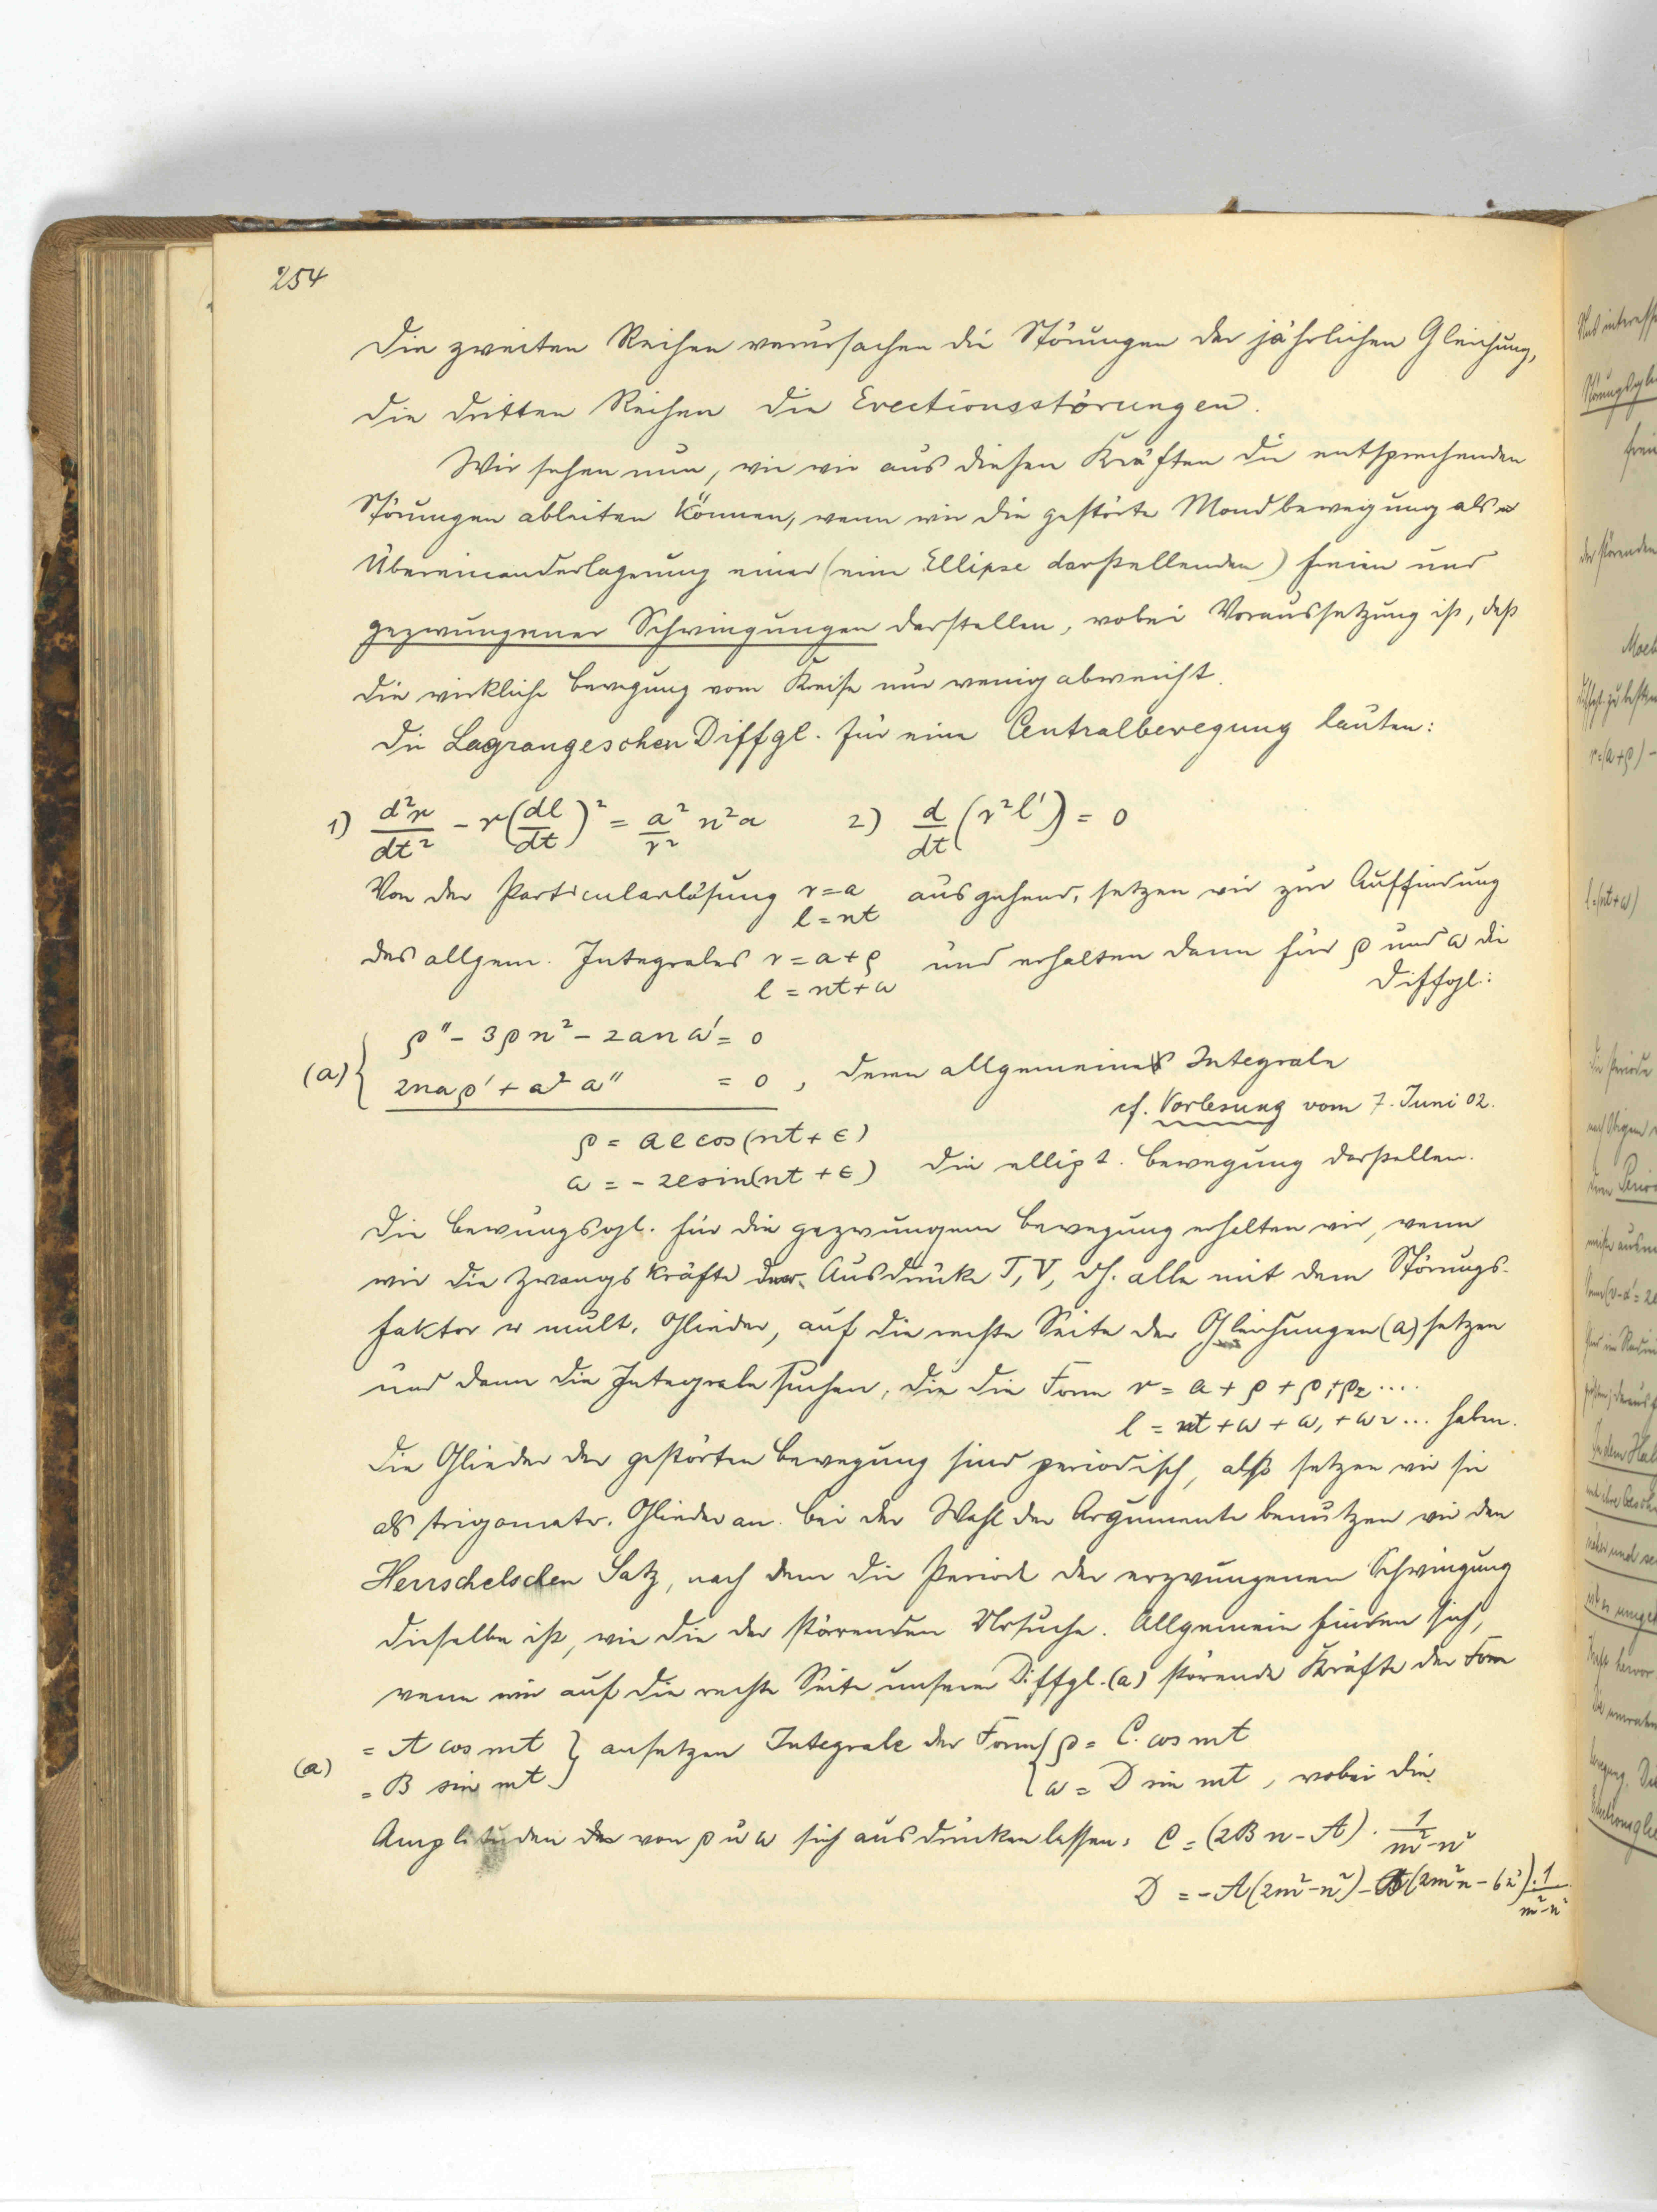 254
Die zweiten Reihen verursachen die Störungen der jährlichen Gleichung,
die dritten Reihen die Evectionsstörungen.
Wir sehen nun, wie wir aus diesen Kräften die entsprechenden
Störungen ableiten können, wenn wir die gestörte Mondbewegung als
Übereinanderlagerung einer (eine Ellipse darstellenden) freien und
gezwungener Schwingungen darstellen, wobei Voraussetzung ist, daß
die wirkliche Bewegung vom Kreise nur wenig abweicht.
Die Lagrangeschen Diffgl. für eine Centralbewegung lauten:
1) d²r/dt² - r(dl/dt)² = a²/r² n²a 2) d/dt (r²l') = 0
Von der Particularlösung r=a ausgehend, setzen wir zur Auffindung
l=nt
des allgem. Integrales r=a+ρ und erhalten dann für ρ und ω die
l=nt+ω Diffgl.:
(a) { ρ'' - 3ρn² - 2anω' = 0
2naρ' + a² a'' = 0, deren allgemeines Integrale
cf. Vorlesung vom 7. Juni 02.
ρ = ae cos(nt+ε)
ω = -2e sin(nt+ε) die ellipt. Bewegung darstellen.
Die Bewungsgl. für die gezwungene Bewegung erhalten wir, wenn
wir die Zwangskräfte der Ausdrücke T, V, dh. alle mit dem Störungs-
faktor mult. Glieder, auf die rechte Seite der Gleichungen (a) setzen
und dann die Integrale suchen, die die Form r = a + ρ + ρ₁ρ₂....
l = nt + ω + ω₁ + ω₂... haben.
Die Glieder der gestörten Bewegung sind periodisch, also setzen wir sie
als trigometr. Glieder an. Bei der Wahl der Argumente benutzen wir den
Herrschelschen Satz, nach dem die Periode der erzwungenen Schwingung
dieselbe ist, wie die der störenden Ursache. Allgemein finden sich,
wenn wir auf die rechte Seite unserer Diffgl. (a) störende Kräfte der Form
(a) = A cos mt } ansetzen Integrale der Form { ρ = C. cos mt
= B sin mt } { ω = D sin mt, wobei die
Amplituden von ρ u ω sich ausdrücken lassen: C = (2Bn - A) · 1/m²-n²
D = -A(2m²-n²) - B(2m²n - 6n²) . 1/m²-n²